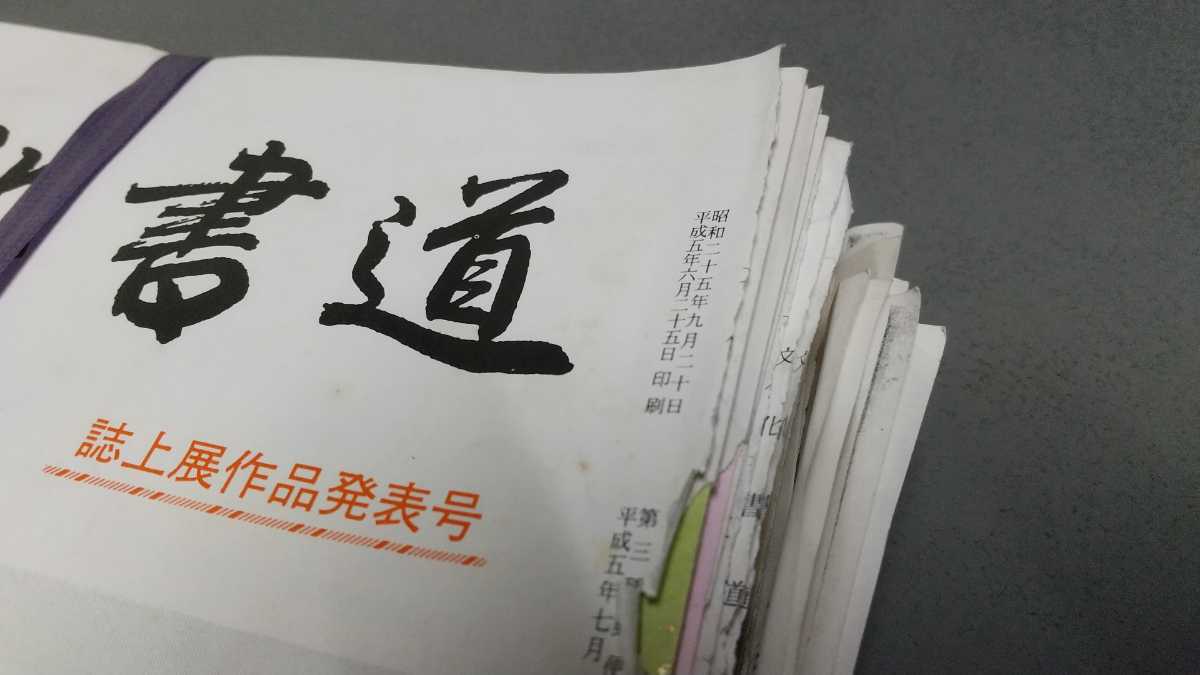 書道
誌上展作品発表号
昭和二十五年九月二十日
平成五年六月二十五日印刷
第三種
平成五年七月
文
化
書
道